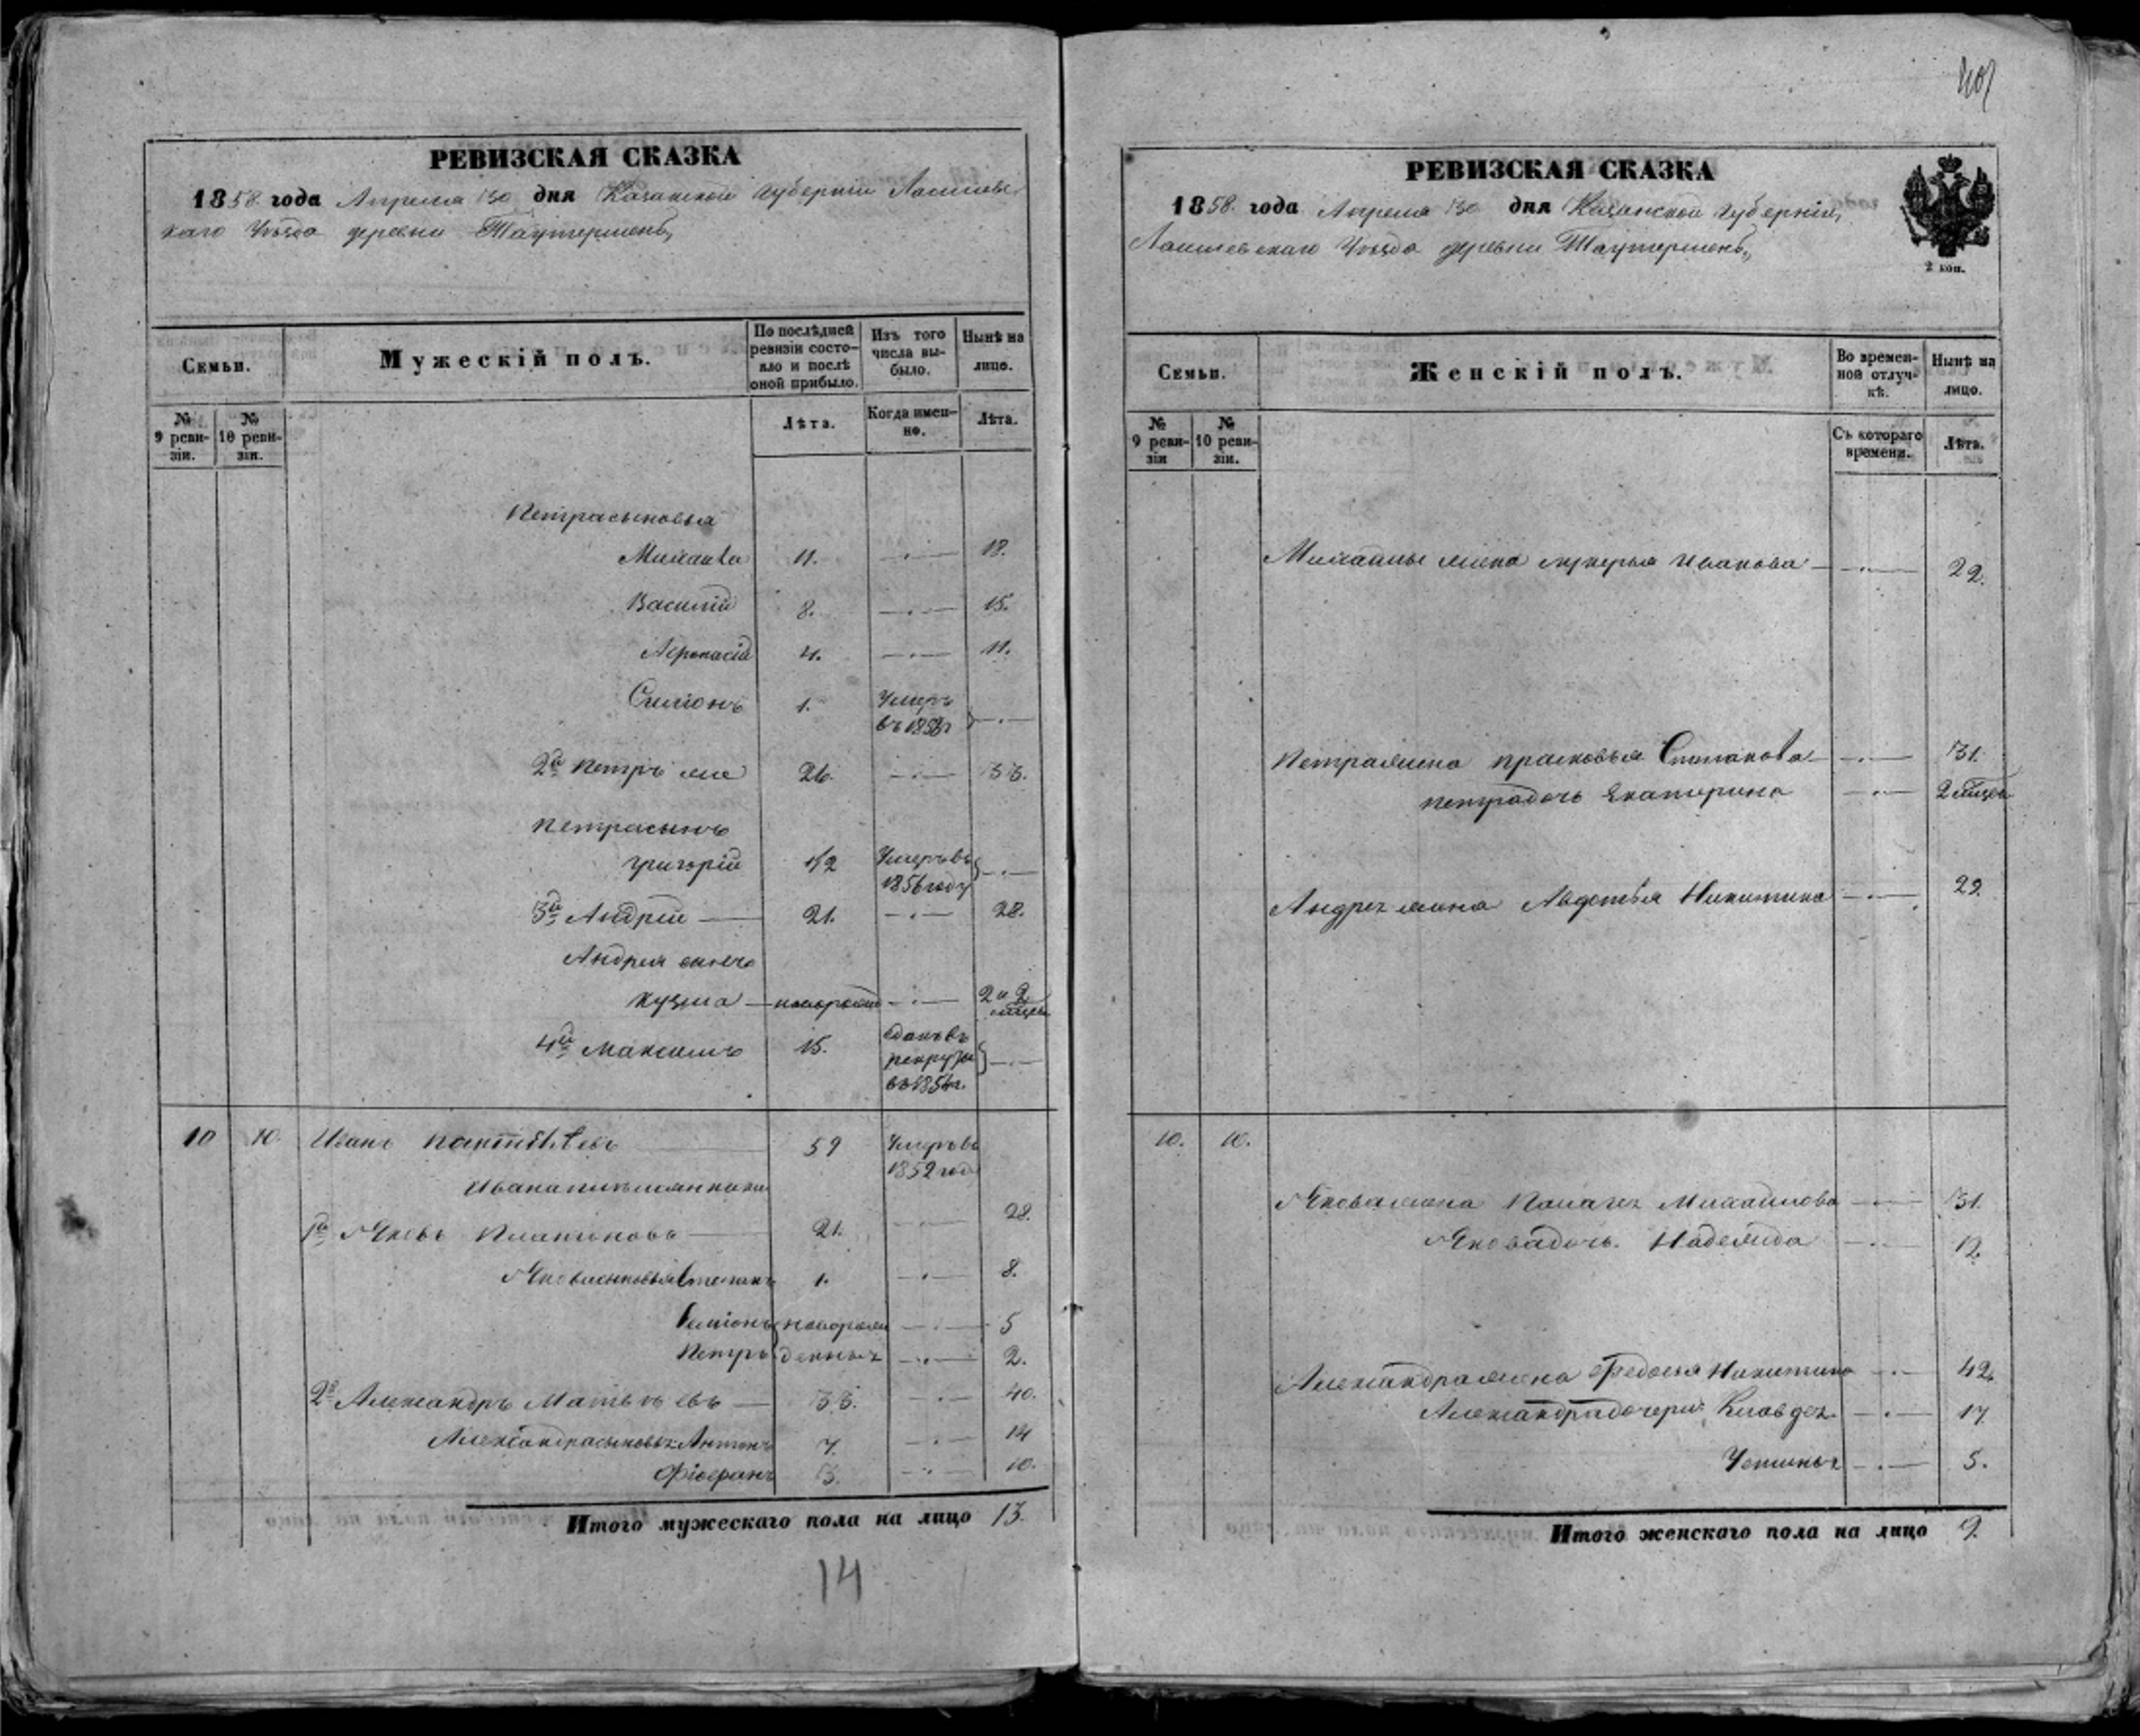 РЕВИЗСКАЯ СКАЗКА
1858 года Апреля 30 дня Казанской губерніи Лаишевс
каго Уѣзда деревни Таутерменъ
Семьи.
Мужескій полъ.
По послѣдней ревизіи состояло и послѣ оной прибыло.
Изъ того числа выбыло.
Нынѣ на лицо.
№ 9 ревизіи.
№ 10 ревизіи.
Лѣта.
Когда именно.
Лѣта.
Петрасыновья
Михаила 11. 18.
Василій 8. 15.
Афонасій 4. 11.
Симіонъ 1. Умеръ
2й Петръ же 26. 33.
Петрасынъ
Григорій 1/2 Умеръ въ
1856 году
3й Андрей 21. 28.
Андрея сынъ
Кузма новорожд 2 и 2
мѣсец
4й Максимъ 15. сданъ въ
рекруты
10 10. Иванъ 59 Умеръ въ
1852 год
Ивана племянники
1й Яковъ Платоновъ 21. 28.
Яковасыновья Степанъ 1. 8.
Симіонъ новорож 5
Петръ денныя 2.
2й Александръ Матвѣевъ 33. 40.
Александрасыновья Антонъ 7. 14
3. 10.
Итого мужескаго пола на лицо 13.
14
РЕВИЗСКАЯ СКАЗКА
1858. года Апреля 30 дня Казанской губерніи,
Лаишевскаго Уѣзда деревни Таутерменъ
2 коп.
Семьи.
Женскій полъ.
Во временной отлучкѣ.
Нынѣ на лицо.
№ 9 ревизіи
№ 10 ревизіи.
Съ котораго времени.
Лѣта.
Михайлы жена Лукерья Иванова 22.
Петражена Прасковья Степанова 31.
Петрадочь Екатерина 2 мѣсец
Андрея жена Авдотья Никитина 29.
10. 10.
Яковажена Пелагея Михайлова 31.
Яковадочь Надежда 12
Александражена Федосья Никитина 42
Александрадочери: 17
Устинья 5.
Итого женскаго пола на лицо 9.